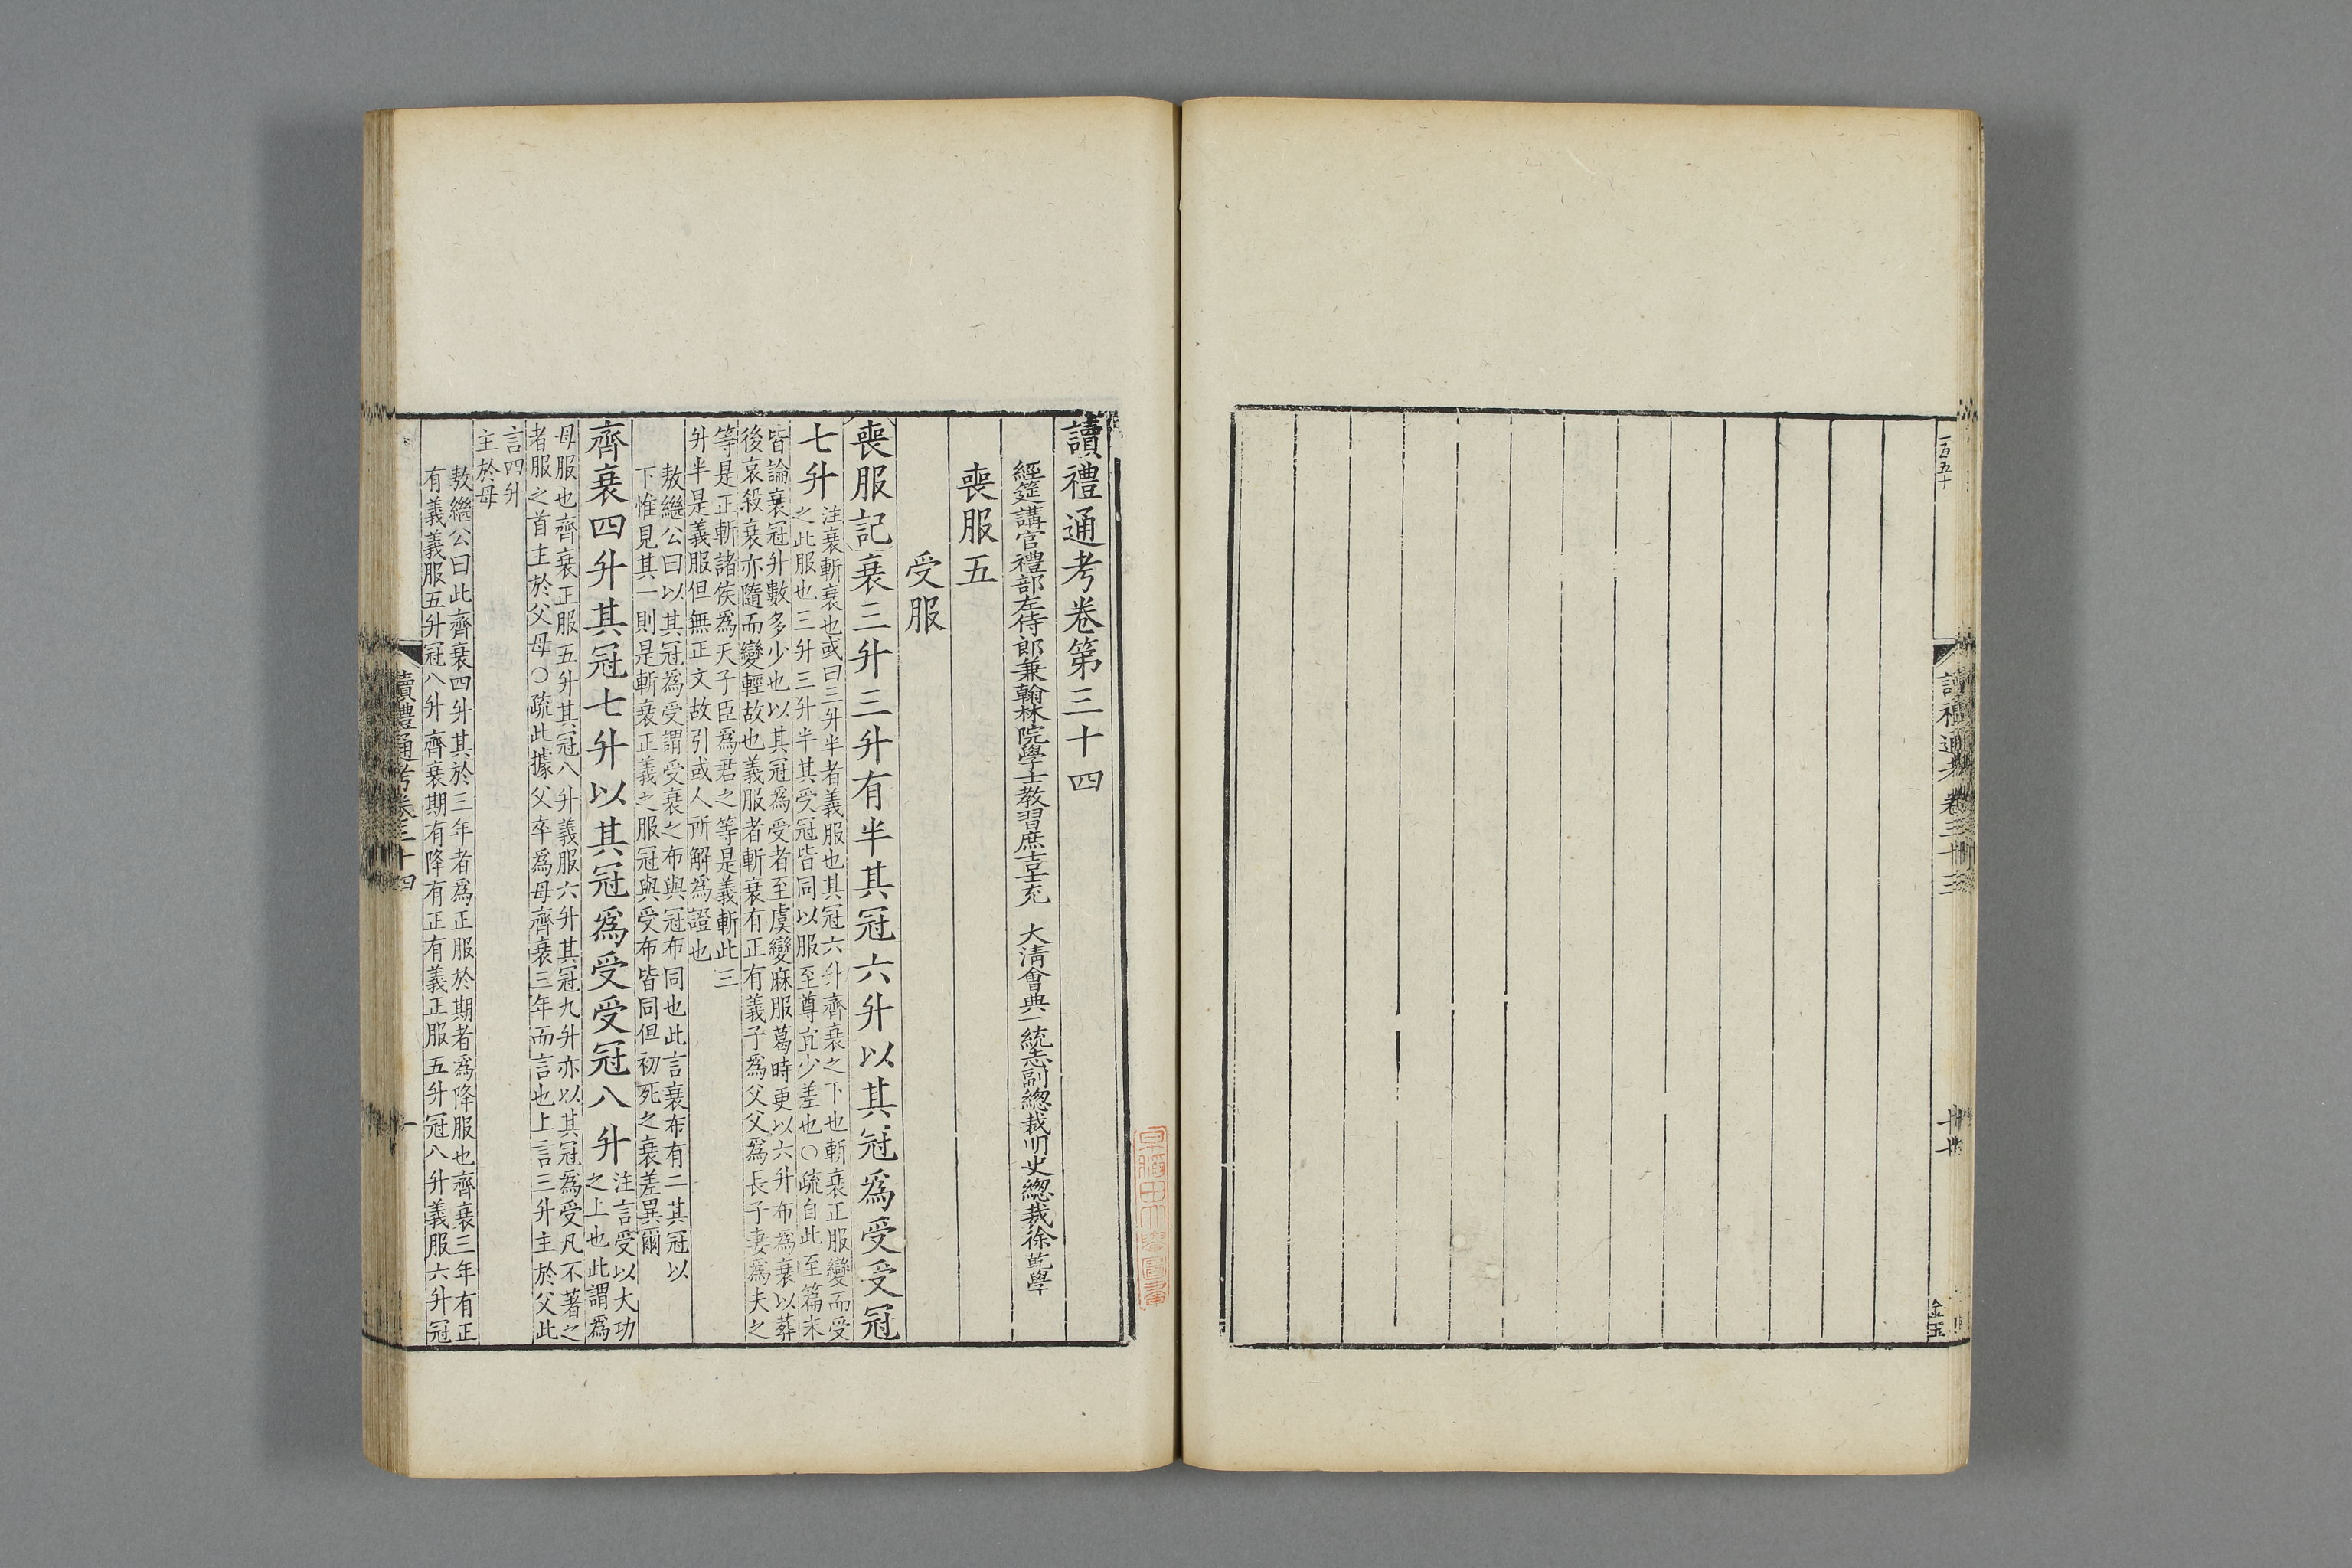 一百五十
讀禮通考 卷三十三
金玉
讀禮通考卷第三十四
經筵講官禮部左侍郎兼翰林院學士教習庶吉士充 大清會典一統志副總裁明史總裁徐乾學
喪服五
受服
喪服記衰三升三升有半其冠六升以其冠爲受受冠
七升
注衰斬衰也或曰三升半者義服也其冠六升齊衰之下也斬衰正服變而受
之此服也三升三升半其受冠皆同以服至尊宜少差也○疏自此至篇末
皆論衰冠升數多少也以其冠爲受者至虞變麻服葛時更以六升布爲衰以葬
後哀殺衰亦隨而變輕故也義服者斬衰有正有義子爲父父爲長子妻爲夫之
等是正斬諸侯爲天子臣爲君之等是義斬此三
升半是義服但無正文故引或人所解爲證也
敖繼公曰以其冠爲受謂受衰之布與冠布同也此言衰布有二其冠以
下惟見其一則是斬衰正義之服冠與受布皆同但初死之衰差異爾
齊衰四升其冠七升以其冠爲受受冠八升
注言受以大功
之上也此謂爲
母服也齊衰正服五升其冠八升義服六升其冠九升亦以其冠爲受凡不著之
者服之首主於父母○疏此據父卒爲母齊衰三年而言也上言三升主於父此
言四升
主於母
敖繼公曰此齊衰四升其於三年者爲正服於期者爲降服也齊衰三年有正
有義義服五升冠八升齊衰期有降有正有義正服五升冠八升義服六升冠
讀禮通考卷三十四
一